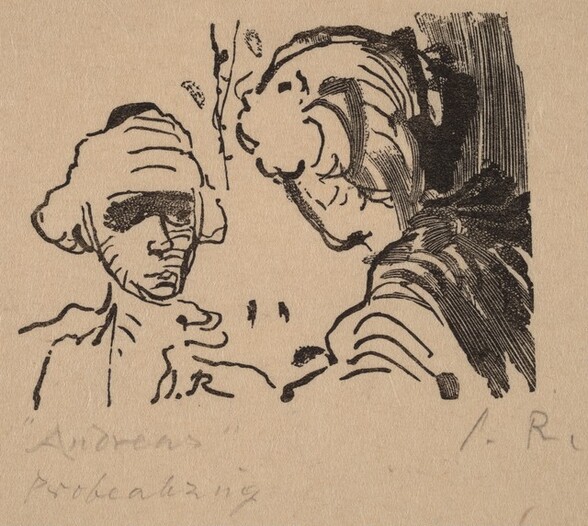 J.R
"Andreas" J. R.
Probeabzug